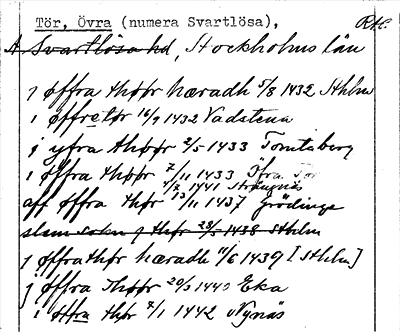 Tör, Övra (numera Svartlösa),
RAC.
A Svartlösa hd, Stockholms län
j øffra thøfr hæradh 5/8 1432 Sthlm
i øffretør 16/9 1432 Vadstena
j yfra thøfr 2/5 1433 Tomtaberg
i øffra thøfr 7/11 1433 Öfra Tör
1441 Strängnäs
aff øffra thør 13/11 1437 Grödinge
slem sokn j thør 28/5 1438 Sthlm
j øffrathør hæradh 11/6 1439 [Sthlm]
j øffra Thøfr 20/3 1440 Eka
i øffra thør 7/1 1442 Nynäs